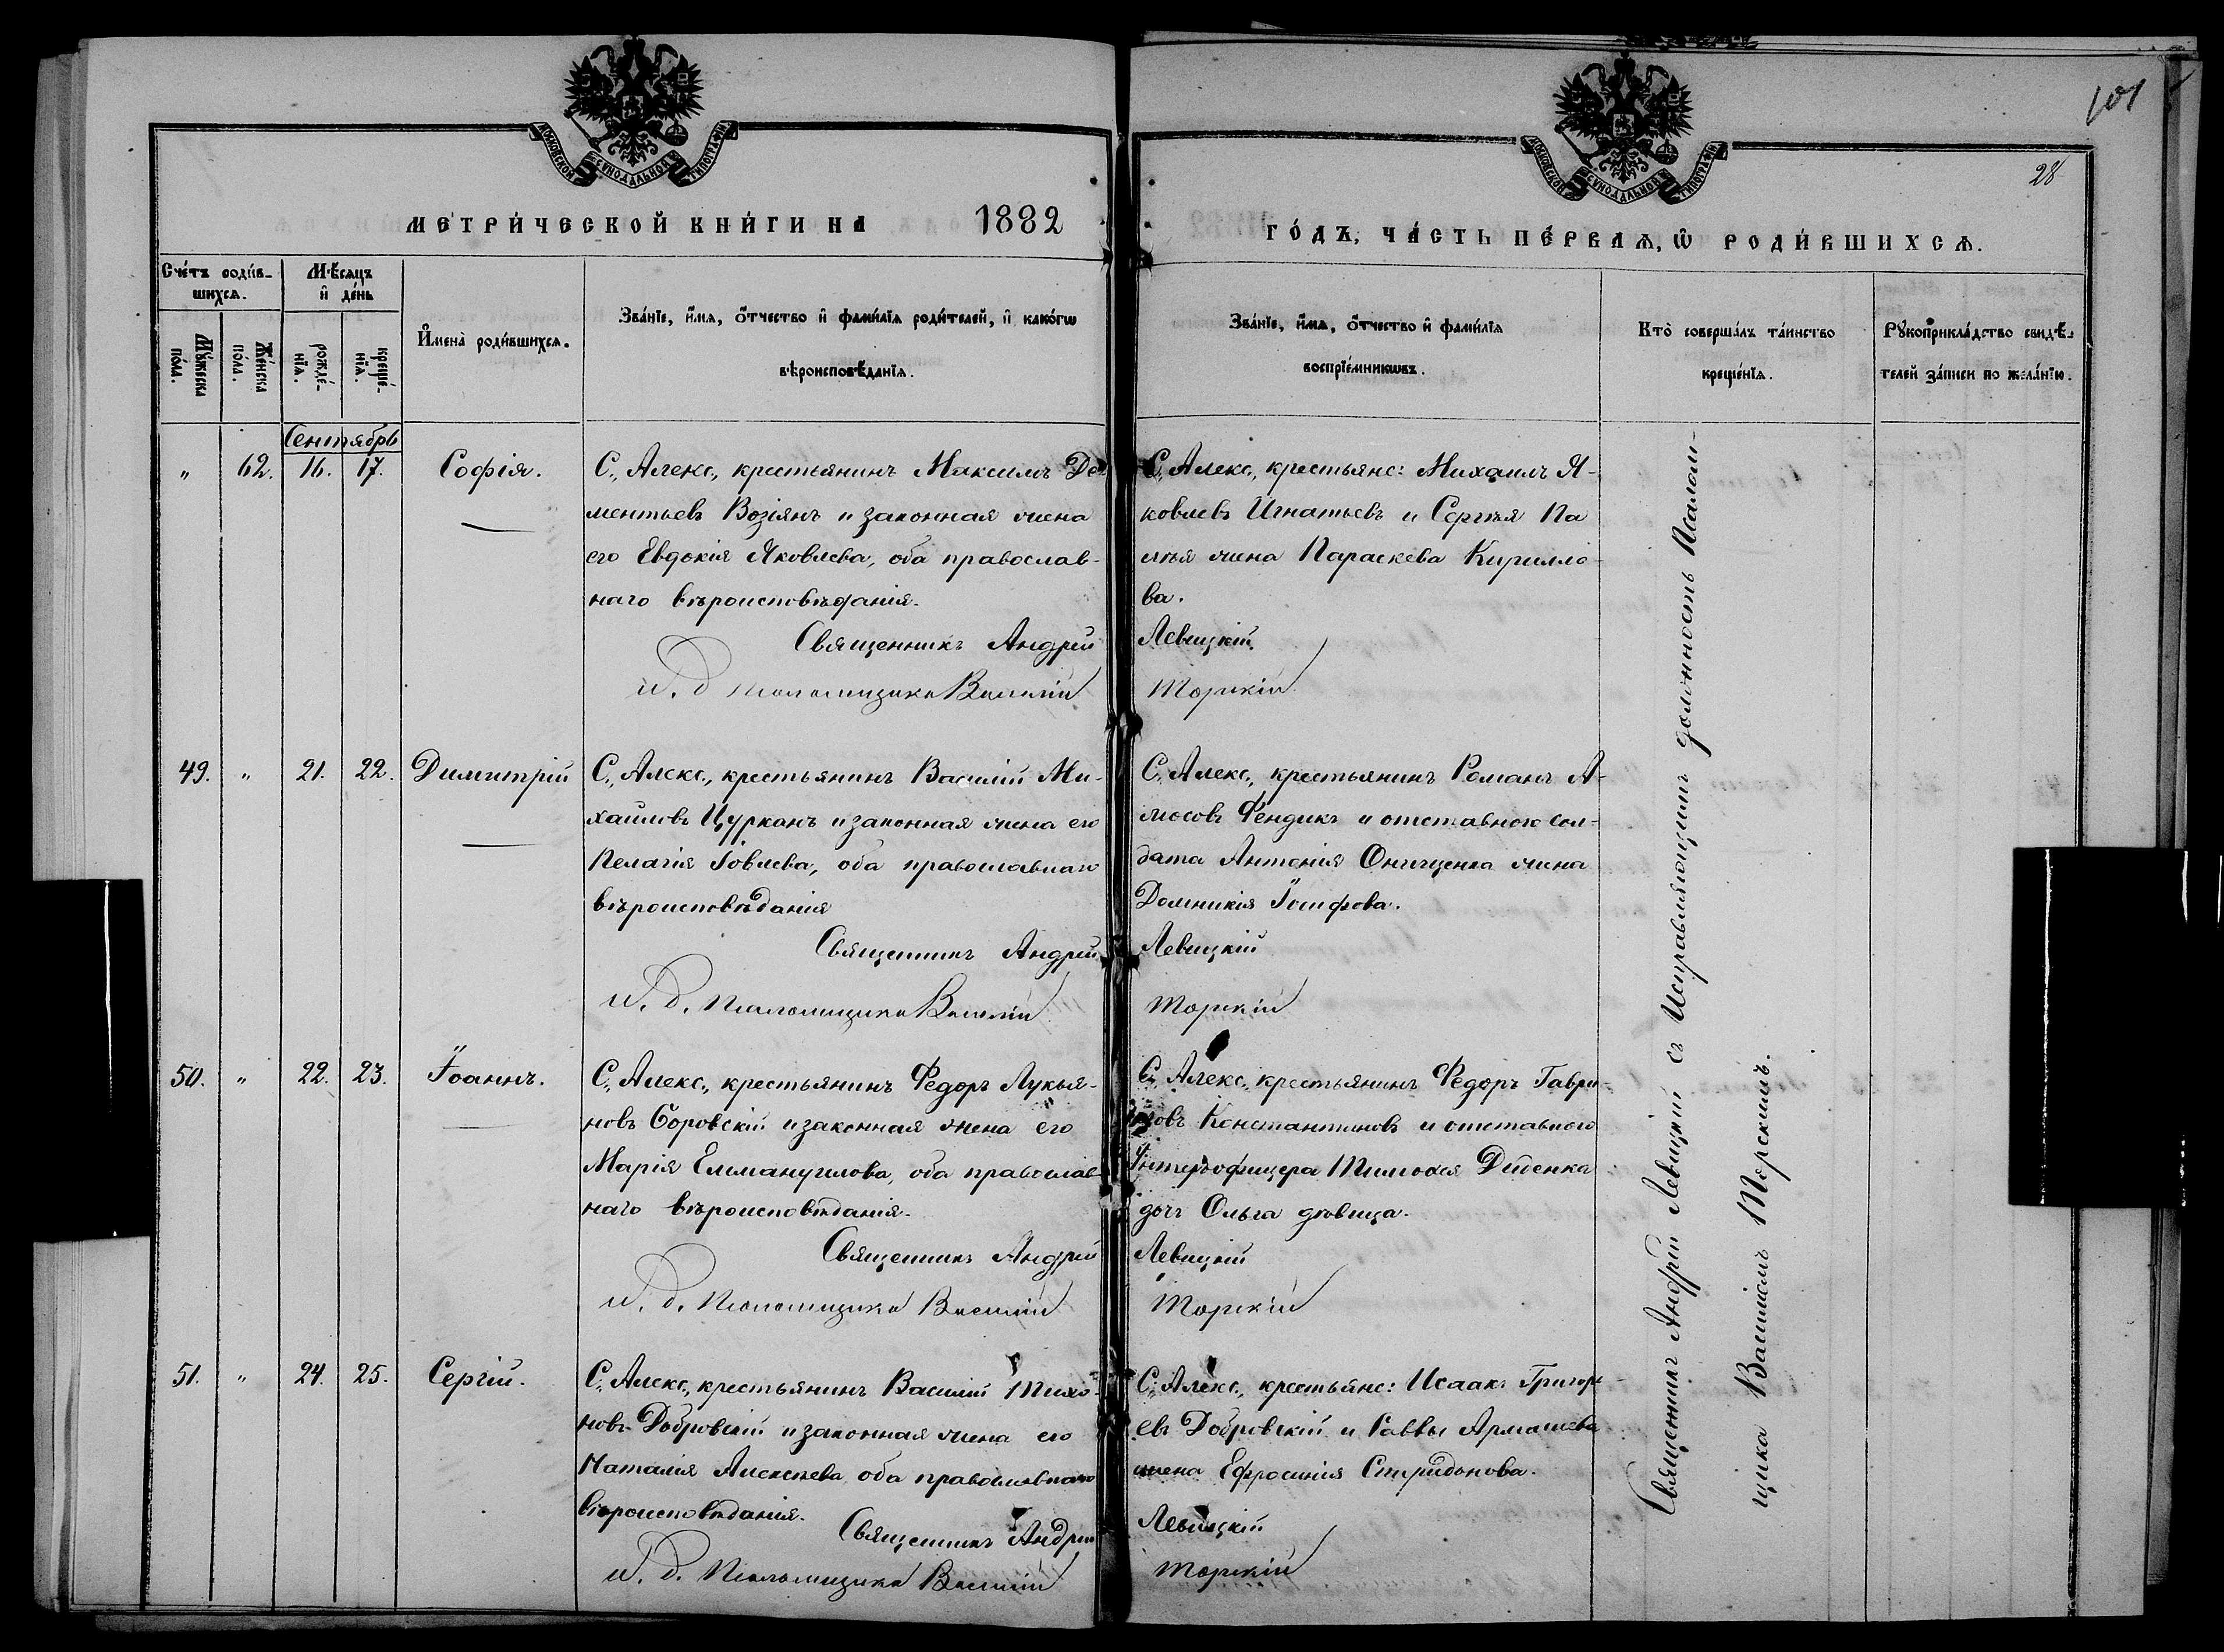 МОСКОВСКОЙ СѴНОДАЛЬНОЙ ТИПОГРАФІИ
МОСКОВСКОЙ СѴНОДАЛЬНОЙ ТИПОГРАФІИ
101
28
МЕТРИ́ЧЕСКОЙ КНИ́ГИ НА 1882
ГО́ДЪ, ЧА́СТЬ ПЕ́РВАѦ, Ѡ҆ РОДИ́ВШИХСѦ.
Сче́тъ роди́в-
шихсѧ.
Мѣ́сѧцъ
и҆ де́нь
Мꙋ́жеска
по́ла.
Же́нска
по́ла.
рожде́-
нїѧ.
креще́-
нїѧ.
И҆мена̀ роди́вшихсѧ.
Зва́нїе, и҆́мѧ, ѻ҆́тчество и҆ фами́лїѧ роди́телей, и҆ како́гѡ
вѣроисповѣ́данїѧ.
Зва́нїе, и҆́мѧ, ѻ҆́тчество и҆ фами́лїѧ
воспрїе́мникѡвъ.
Кто̀ соверша́лъ та́инство
креще́нїѧ.
Рꙋкоприкла́дство свидѣ́-
телей за́писи по жела́нїю.
Сентябрь
" 62. 16. 17. Софія.
С., Алекс., крестьянинъ Максимъ Де-
ментьевъ Возіянъ и законная жена
его Евдокія Яковлева, оба православ-
наго вѣроисповѣданія.
Священникъ Андрей Левицкій
и. д. псаломщика Василій Торскій
С., Алекс., крестьяне: Михаилъ Я-
ковлевъ Игнатьевъ и Сергѣя Па
жена Параскева Кирилло-
ва.
49. " 21. 22. Димитрій
С., Алекс., крестьянинъ Василій Ми-
хайловъ Цурканъ и законная жена его
Пелагія Іовлева, оба православнаго
вѣроисповѣданія
Священникъ Андрей Левицкій
И. д. Псаломщика Василій Торскій
С., Алекс., крестьянинъ Романъ А-
мосовъ Фендикъ и отставного сол-
дата Антонія Онищенка жена
Домникія Іосифова.
50. " 22. 23. Іоаннъ.
С., Алекс., крестьянинъ Федоръ Лукья-
новъ Боровскій и законная жена его
Марія Еммануилова, оба православ-
наго вѣроисповѣданія.
Священникъ Андрей Левицкій
И. д. Псаломщика Василій Торскій
С., Алекс., крестьянинъ Федоръ Гаври-
ловъ Константиновъ и отставного
Унтеръ-офицера Тимофея Диденка
дочь Ольга дѣвица.
51. " 24. 25. Сергій.
С., Алекс., крестьянинъ Василій Тихо-
новъ Добровскій и законная жена его
Наталія Алексѣева оба православнаго
вѣроисповѣданія.
Священникъ Андрей Левицкій
И. д. Псаломщика Василій Торскій
С., Алекс., крестьяне: Исаакъ Григорь-
евъ Добровскій и Саввы Армашева
жена Ефросинія Спиридонова.
Священникъ Андрей Левицкій съ Исправляющимъ должность Псалом-
щика Василіемъ Торскимъ.